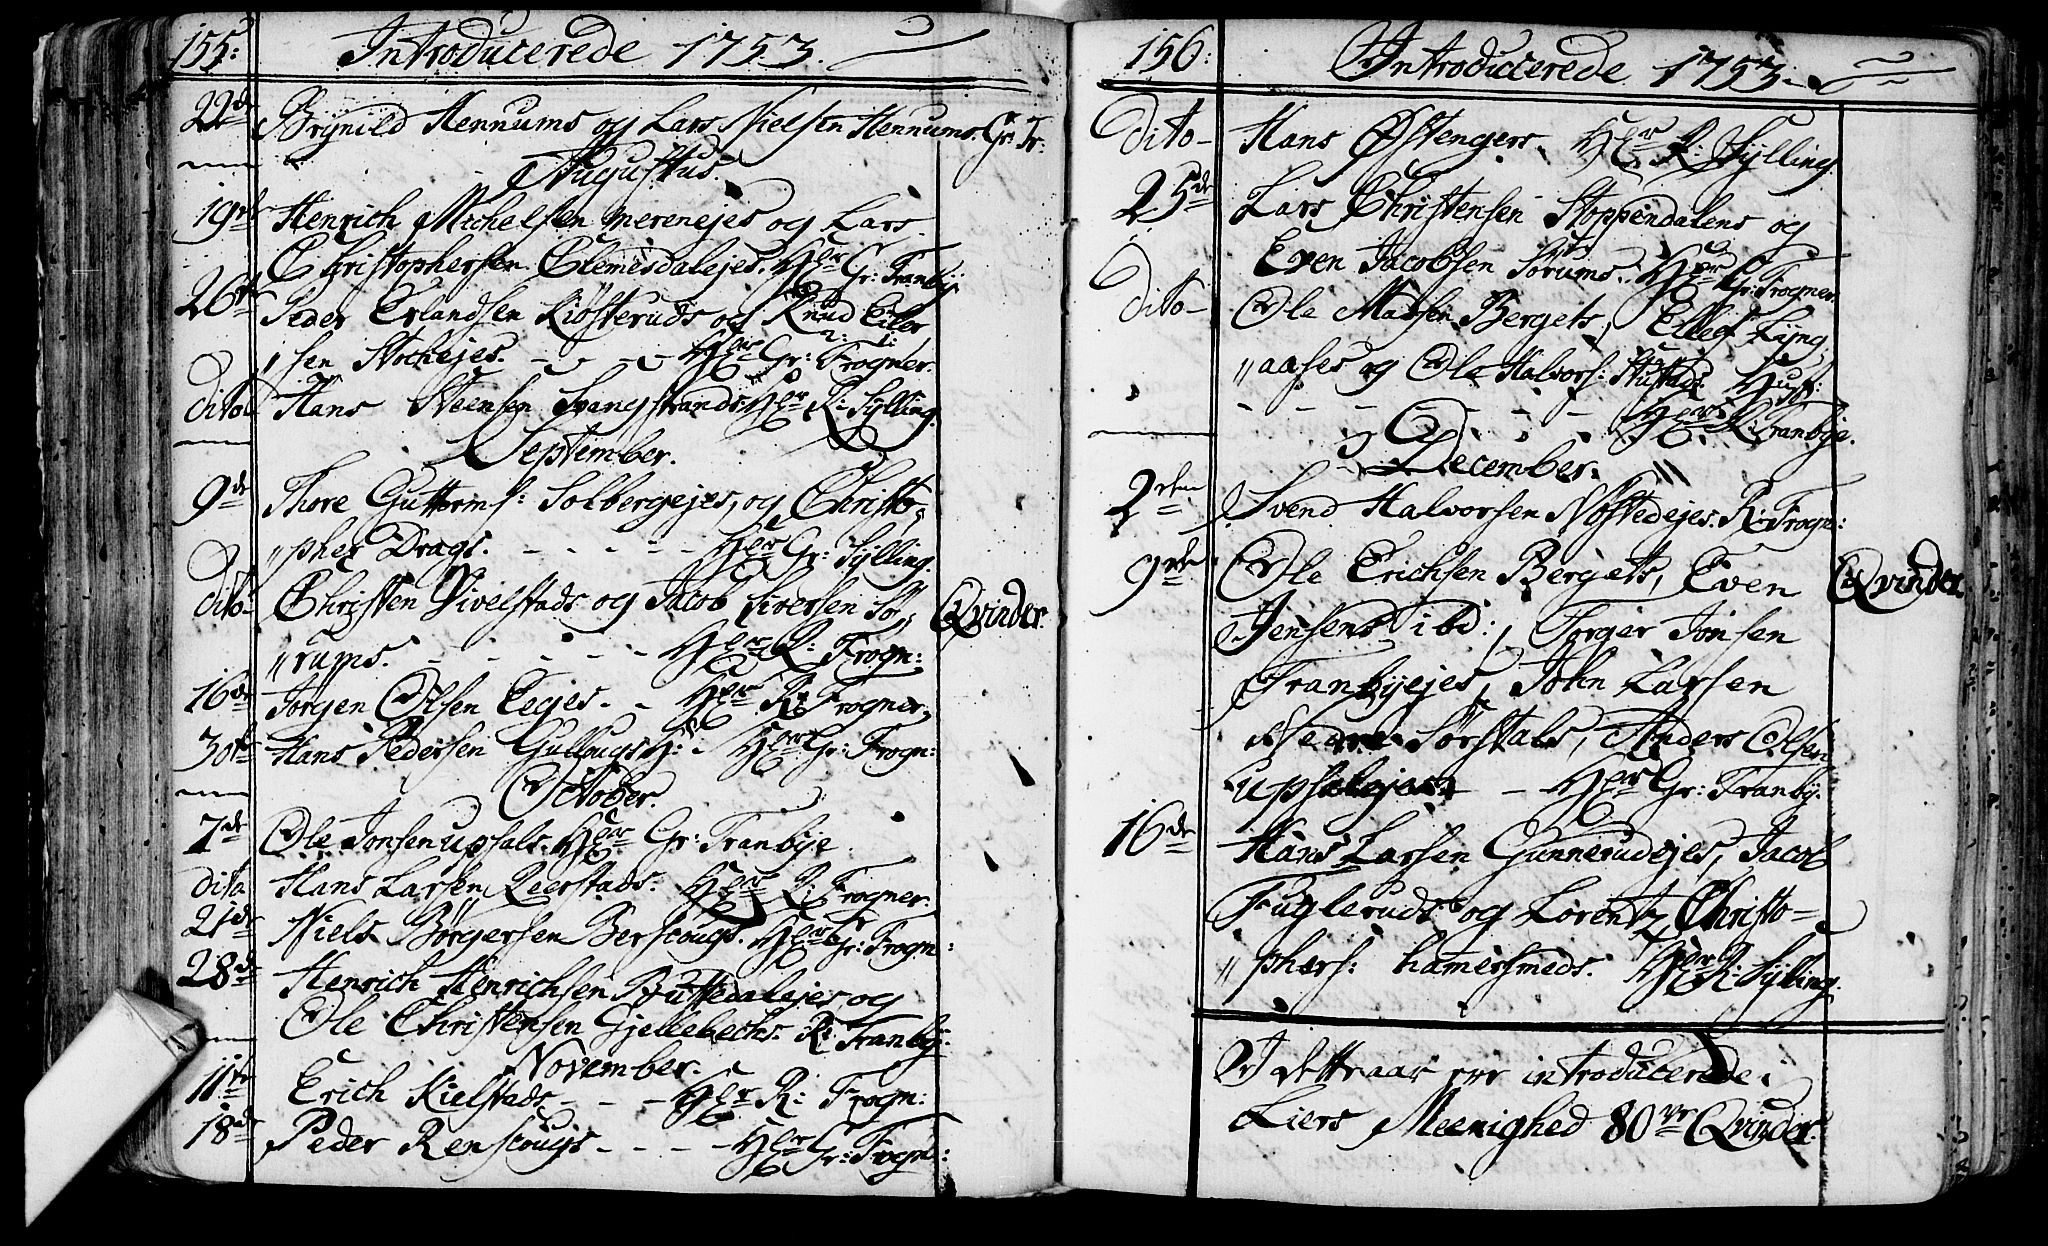 155: Introducerede 1753.
22de Brynild Hennums og Lars Nielsen Hennums. Gr: Tr:
Augustus.
19de Henrich Michelsen merenejes og Lars
Christophersen Clemesdalejes. Hr Gr: Tranby
26de Peder Erlandsen Kiösteruds og Knud Eiler
„sen Stochejes. - - - Hr Gr: Frogner.
Dito Hans Steensen Svangstrands Hr R: Sylling.
September.
9de Thore Guttormss: Solbergejes, og Christo„
„pher Drags. - - - - - Hr Gr: Sylling.
dito- Christen Vivelstads og Jacob Siversen Sö„ Qvinder
„rums. - - - - - Hr R: Frogn:
16de Jörgen Olsen Eeges. - - Hr R: Frogner.
30te Hans Pedersen Gullougs Hr Gr: Frogn:
October.
7de Ole Jonsen Upsals. Hr Gr: Tranbye.
dito Hans Larsen Reerstads. Hr R: Frogner.
21de Niels Börgersen Berscougs. Hr Gr: Frogn:
28de Henrich Henrichsen Büttedalejes og
Ole Christensen Gjellebechs. R: Tranby.
November.
11te Erich Kielstads - - - Hr R: Frogn:
18de Peder Renscougs - - - - Hr Gr: Frogn:
156: Introducerede 1753.
Dito- Hans Östengers. Hr R: Sylling.
25de Lars Christensen Stoppendalens og
Even Jacobsen Sörums. Hr Gr: Frogner.
dito- Ole Madsen Bergets, Ellef Lyng„
„aases og Ole Halvors: Hustr:
- - - - - - - Hr R: Tranbye.
December.
2den Svend Halvorsen Nöstedejes. R: Frogn:
9de Ole Erichsen Bergets, Even Qvinder.
Jensens ibd:, Torger Jonsen
Tranbyejes, John Larsen
Nedre Sörstals, Anders Olsen
Upsalejes - Hr Gr: Tranby.
16de Hans Larsen Gunnerudejes, Jacob
Fugleruds og Lorentz Christo-
„phers: hamersmeds. Hr R: Sylling.
I dette aar ere introducerede i
Liers Meenighed 80 Qvinder.